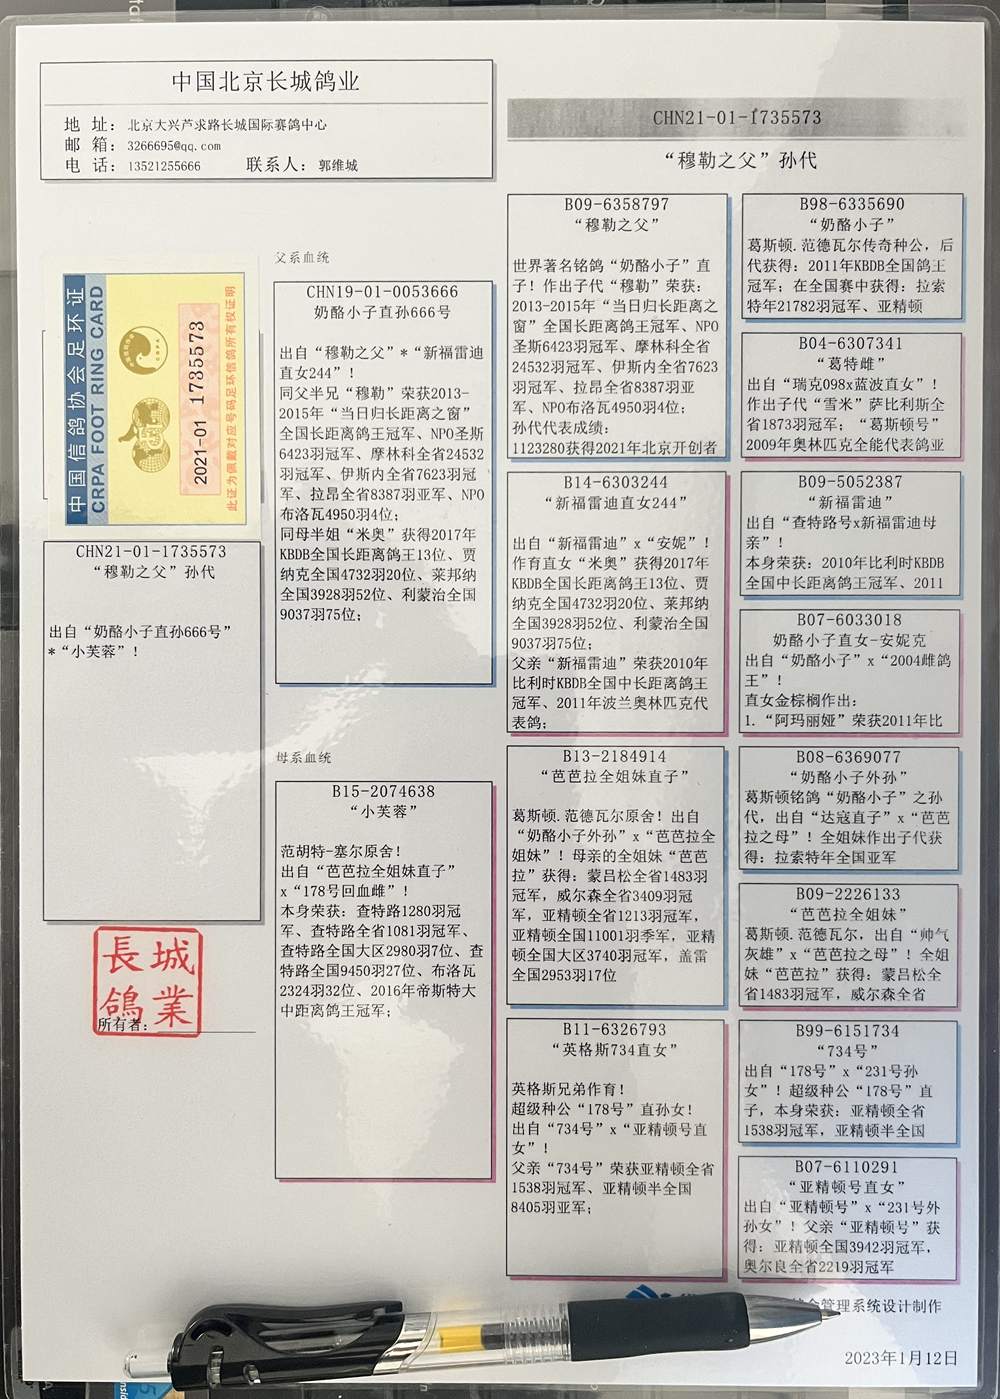 中国北京长城鸽业
地 址：北京大兴芦求路长城国际赛鸽中心
邮 箱：3266695@qq.com
电 话：13521255666 联系人：郭维城
CHN21-01-1735573
“穆勒之父”孙代
中国信鸽协会足环证
CRPA FOOT RING CARD
2021-01-1735573
此证为佩戴对应号码足环信鸽所有权证明
CHN21-01-1735573
“穆勒之父”孙代
出自“奶酪小子直孙666号”
*“小芙蓉”！
長城
鸽業
所有者：
父系血统
CHN19-01-0053666
奶酪小子直孙666号
出自“穆勒之父”*“新福雷迪
直女244”！
同父半兄“穆勒”荣获2013-
2015年“当日归长距离之窗”
全国长距离鸽王冠军、NPO圣斯
6423羽冠军、摩林科全省24532
羽冠军、伊斯内全省7623羽冠
军、拉昂全省8387羽亚军、NPO
布洛瓦4950羽4位；
同母半姐“米奥”获得2017年
KBDB全国长距离鸽王13位、贾
纳克全国4732羽20位、莱邦纳
全国3928羽52位、利蒙治全国
9037羽75位；
母系血统
B15-2074638
“小芙蓉”
范胡特-塞尔原舍！
出自“芭芭拉全姐妹直子”
x“178号回血雌”！
本身荣获：查特路1280羽冠
军、查特路全省1081羽冠军、
查特路全国大区2980羽7位、查
特路全国9450羽27位、布洛瓦
2324羽32位、2016年帝斯特大
中距离鸽王冠军；
B09-6358797
“穆勒之父”
世界著名铭鸽“奶酪小子”直
子！作出子代“穆勒”荣获：
2013-2015年“当日归长距离之
窗”全国长距离鸽王冠军、NPO
圣斯6423羽冠军、摩林科全省
24532羽冠军、伊斯内全省7623
羽冠军、拉昂全省8387羽亚
军、NPO布洛瓦4950羽4位；
孙代代表成绩：
1123280获得2021年北京开创者
B14-6303244
“新福雷迪直女244”
出自“新福雷迪”x“安妮”！
作育直女“米奥”获得2017年
KBDB全国长距离鸽王13位、贾
纳克全国4732羽20位、莱邦纳
全国3928羽52位、利蒙治全国
9037羽75位；
父亲“新福雷迪”荣获2010年
比利时KBDB全国中长距离鸽王
冠军、2011年波兰奥林匹克代
表鸽；
B13-2184914
“芭芭拉全姐妹直子”
葛斯顿.范德瓦尔原舍！出自
“奶酪小子外孙”x“芭芭拉全
姐妹”！母亲的全姐妹“芭芭
拉”获得：蒙吕松全省1483羽
冠军，威尔森全省3409羽冠
军，亚精顿全省1213羽冠军，
亚精顿全国11001羽季军，亚精
顿全国大区3740羽冠军，盖雷
全国2953羽17位
B11-6326793
“英格斯734直女”
英格斯兄弟作育！
超级种公“178号”直孙女！
出自“734号”x“亚精顿号直
女”！
父亲“734号”荣获亚精顿全省
1538羽冠军、亚精顿半全国
8405羽亚军；
B98-6335690
“奶酪小子”
葛斯顿.范德瓦尔传奇种公，后
代获得：2011年KBDB全国鸽王
冠军；在全国赛中获得：拉索
特年21782羽冠军、亚精顿
B04-6307341
“葛特雌”
出自“瑞克098x蓝波直女”！
作出子代“雪米”萨比利斯全
省1873羽冠军；“葛斯顿号”
2009年奥林匹克全能代表鸽亚
B09-5052387
“新福雷迪”
出自“查特路号x新福雷迪母
亲”！
本身荣获：2010年比利时KBDB
全国中长距离鸽王冠军、2011
B07-6033018
奶酪小子直女-安妮克
出自“奶酪小子”x“2004雌鸽
王”！
直女金棕榈作出：
1.“阿玛丽娅”荣获2011年比
B08-6369077
“奶酪小子外孙”
葛斯顿铭鸽“奶酪小子”之孙
代，出自“达寇直子”x“芭芭
拉之母”！全姐妹作出子代获
得：拉索特年全国亚军
B09-2226133
“芭芭拉全姐妹”
葛斯顿.范德瓦尔，出自“帅气
灰雄”x“芭芭拉之母”！全姐
妹“芭芭拉”获得：蒙吕松全
省1483羽冠军，威尔森全省
B99-6151734
“734号”
出自“178号”x“231号孙
女”！超级种公“178号”直
子，本身荣获：亚精顿全省
1538羽冠军，亚精顿半全国
B07-6110291
“亚精顿号直女”
出自“亚精顿号”x“231号外
孙女”！父亲“亚精顿号”获
得：亚精顿全国3942羽冠军，
奥尔良全省2219羽冠军
管理系统设计制作
2023年1月12日